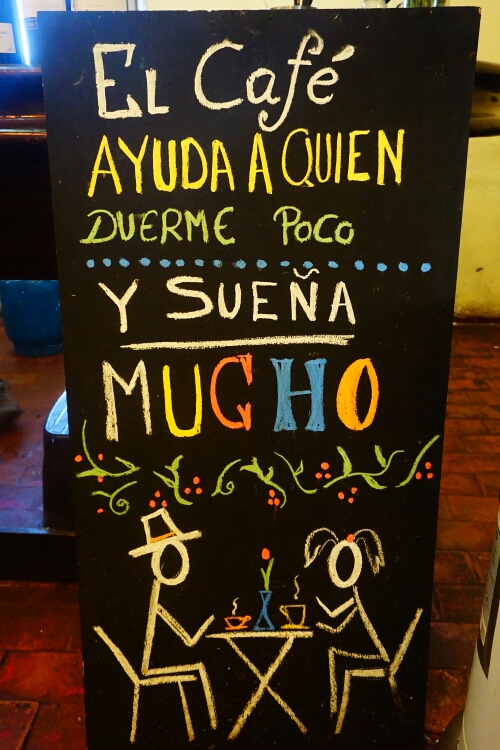 El Café
AYUDA A QUIEN
DUERME POCO
Y SUEÑA
MUCHO